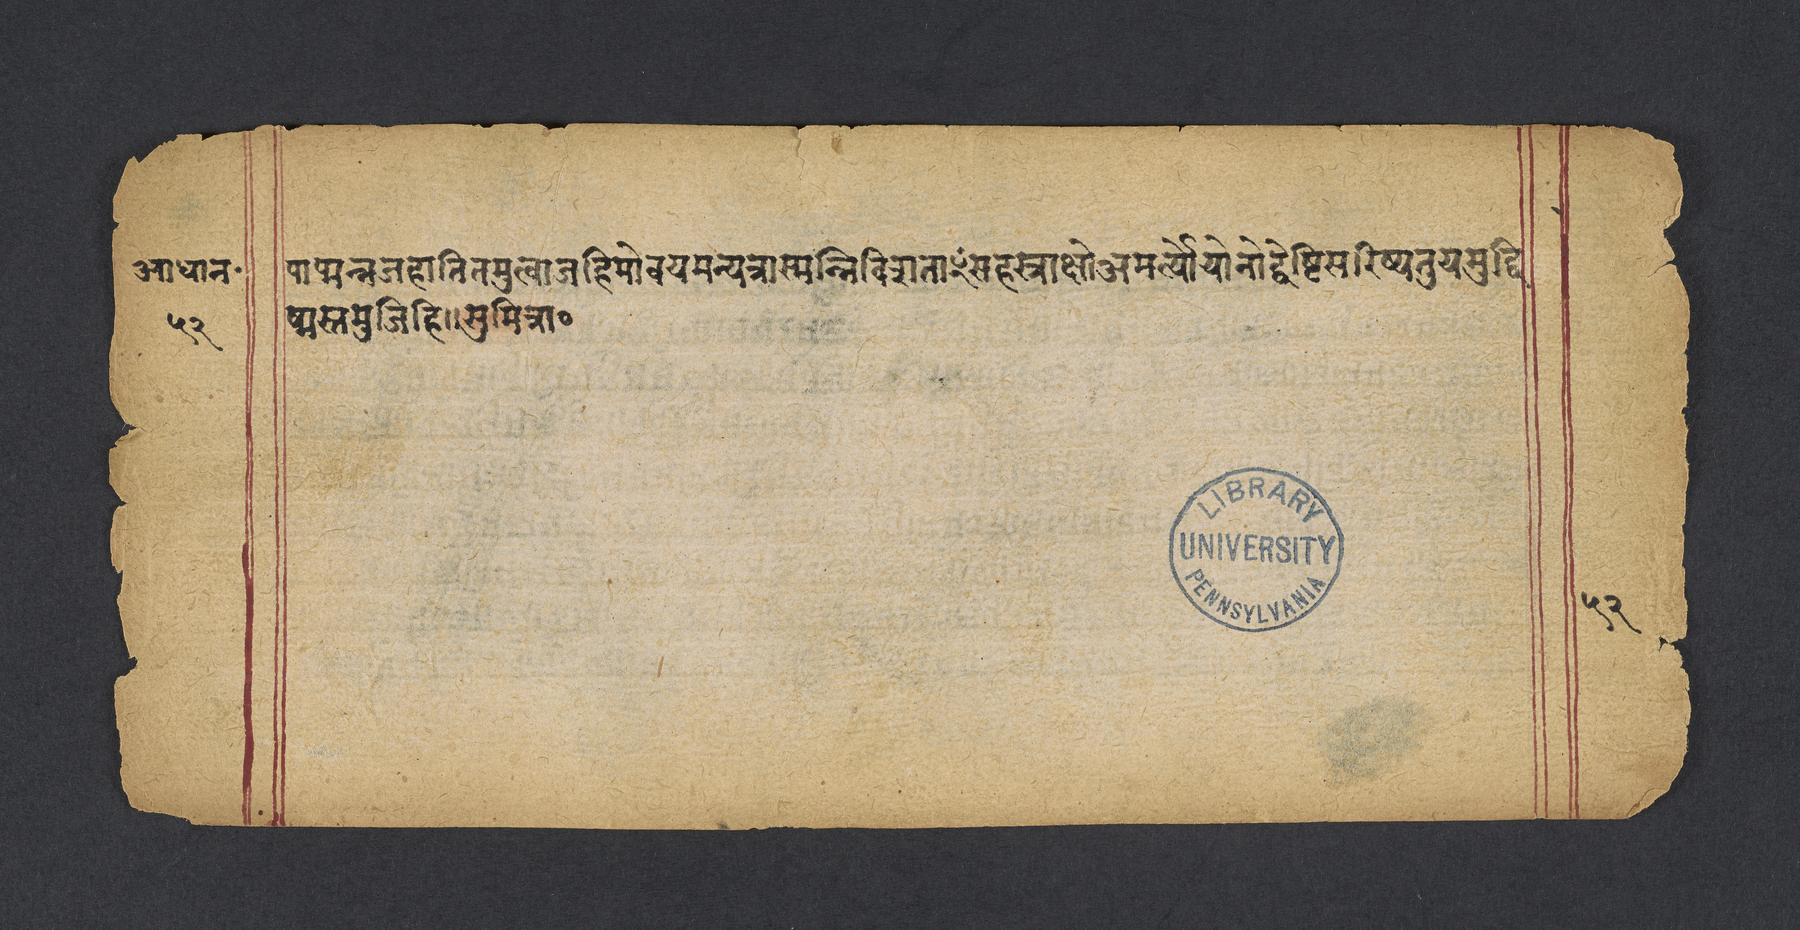 आधान॰
पाप्मन्नजहातितमुत्वाजहिमोवयमन्यत्रास्मन्निविशताꣳसहस्त्राक्षोअमर्त्योयोनोद्वेष्टिसरिष्यतुयमुद्वि
५२
ष्मस्तमुजिहि॥सुमित्रा०
LIBRARY
UNIVERSITY
PENNSYLVANIA
५२